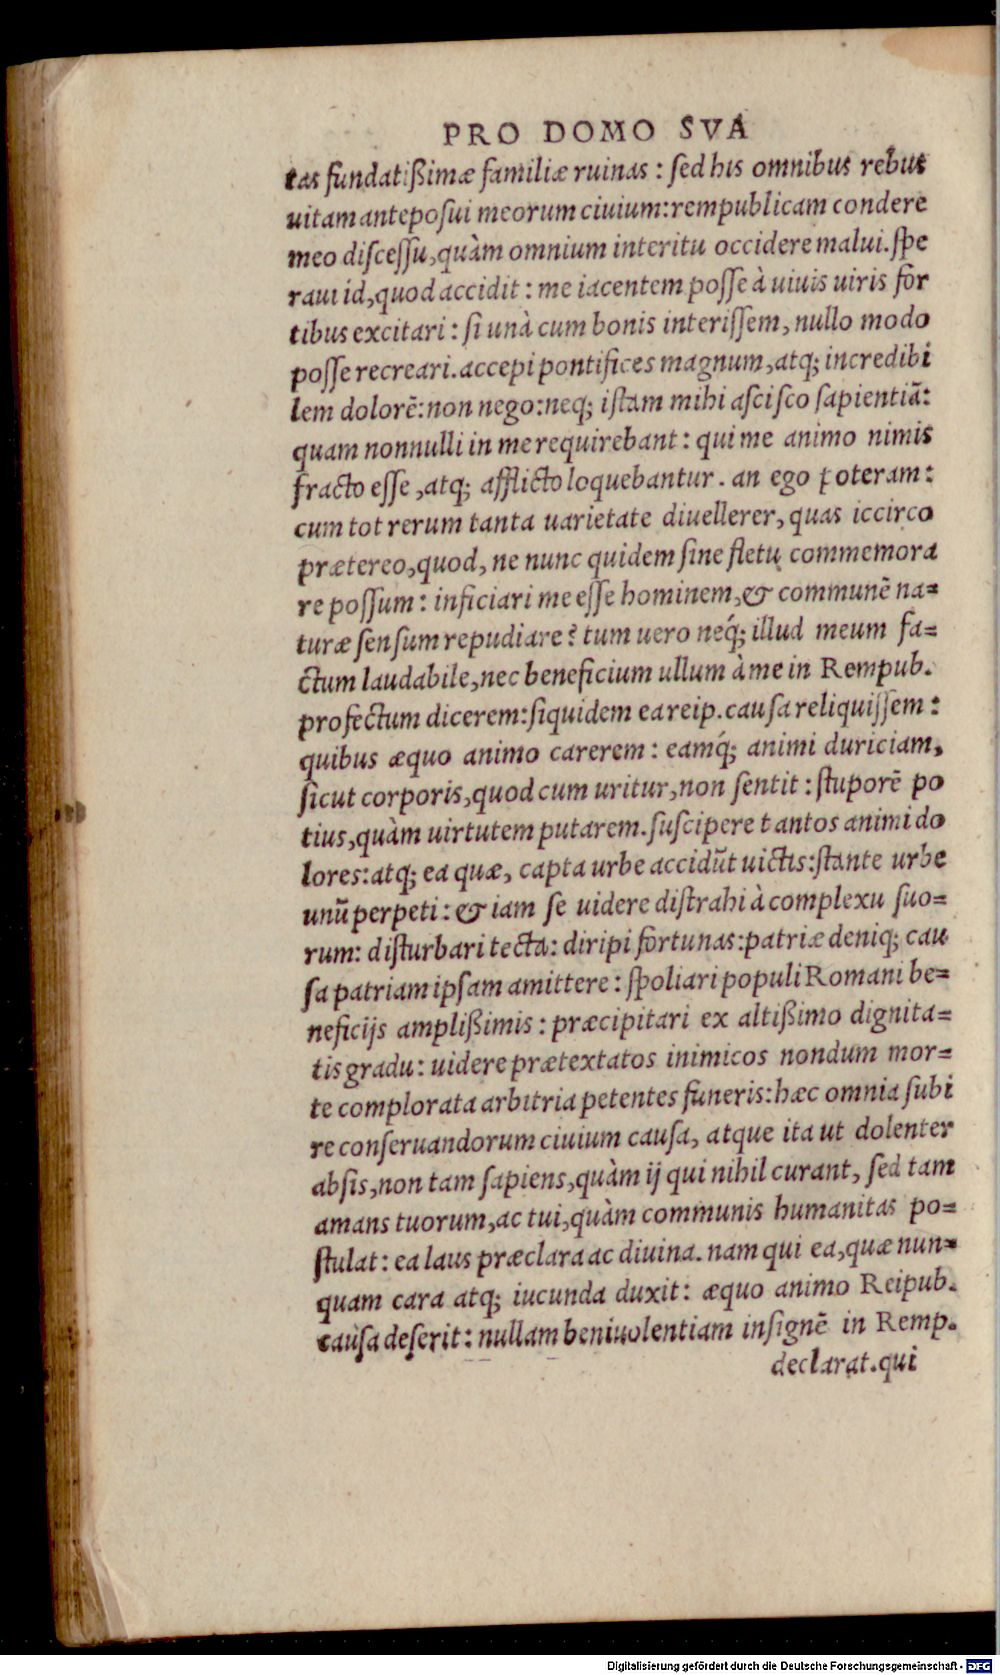 PRO DOMO SVA
tas fundatißimæ familiæ ruinas : sed his omnibus rebus
uitam anteposui meorum ciuium:rempublicam condere
meo discessu,quàm omnium interitu occidere malui.spe
raui id,quod accidit : me iacentem posse à uiuis uiris for
tibus excitari : si unà cum bonis interissem,nullo modo
posse recreari.accepi pontifices magnum,atq; incredibi
lem dolorē:non nego:neq; istam mihi ascisco sapientiā:
quam nonnulli in me requirebant : qui me animo nimis
fracto esse ,atq; afflicto loquebantur. an ego poteram:
cum tot rerum tanta uarietate diuellerer,quas iccirco
prætereo,quod, ne nunc quidem sine fletu commemora
re possum : inficiari me esse hominem,& communē na=
turæ sensum repudiare? tum uero neq́; illud meum fa=
ctum laudabile,nec beneficium ullum à me in Rempub.
profectum dicerem:siquidem ea reip.causa reliquissem :
quibus æquo animo carerem : eamq́; animi duriciam,
sicut corporis,quod cum uritur,non sentit : stuporē po
tius,quàm uirtutem putarem.suscipere tantos animi do
lores:atq; ea quæ, capta urbe accidūt uictis:stante urbe
unū perpeti : & iam se uidere distrahi à complexu suo=
rum: disturbari tecta: diripi fortunas:patriæ deniq; cau
sa patriam ipsam amittere : spoliari populi Romani be=
neficijs amplißimis : præcipitari ex altißimo dignita=
tis gradu: uidere prætextatos inimicos nondum mor=
te complorata arbitria petentes funeris:hæc omnia subi
re conseruandorum ciuium causa, atque ita ut dolenter
absis,non tam sapiens,quàm ij qui nihil curant, sed tam
amans tuorum,ac tui,quàm communis humanitas po=
stulat : ea laus præclara ac diuina. nam qui ea,quæ nun=
quam cara atq; iucunda duxit : æquo animo Reipub.
causa deserit : nullam beniuolentiam insignē in Remp.
declarat.qui
Digitalisierung gefördert durch die Deutsche Forschungsgemeinschaft - DFG